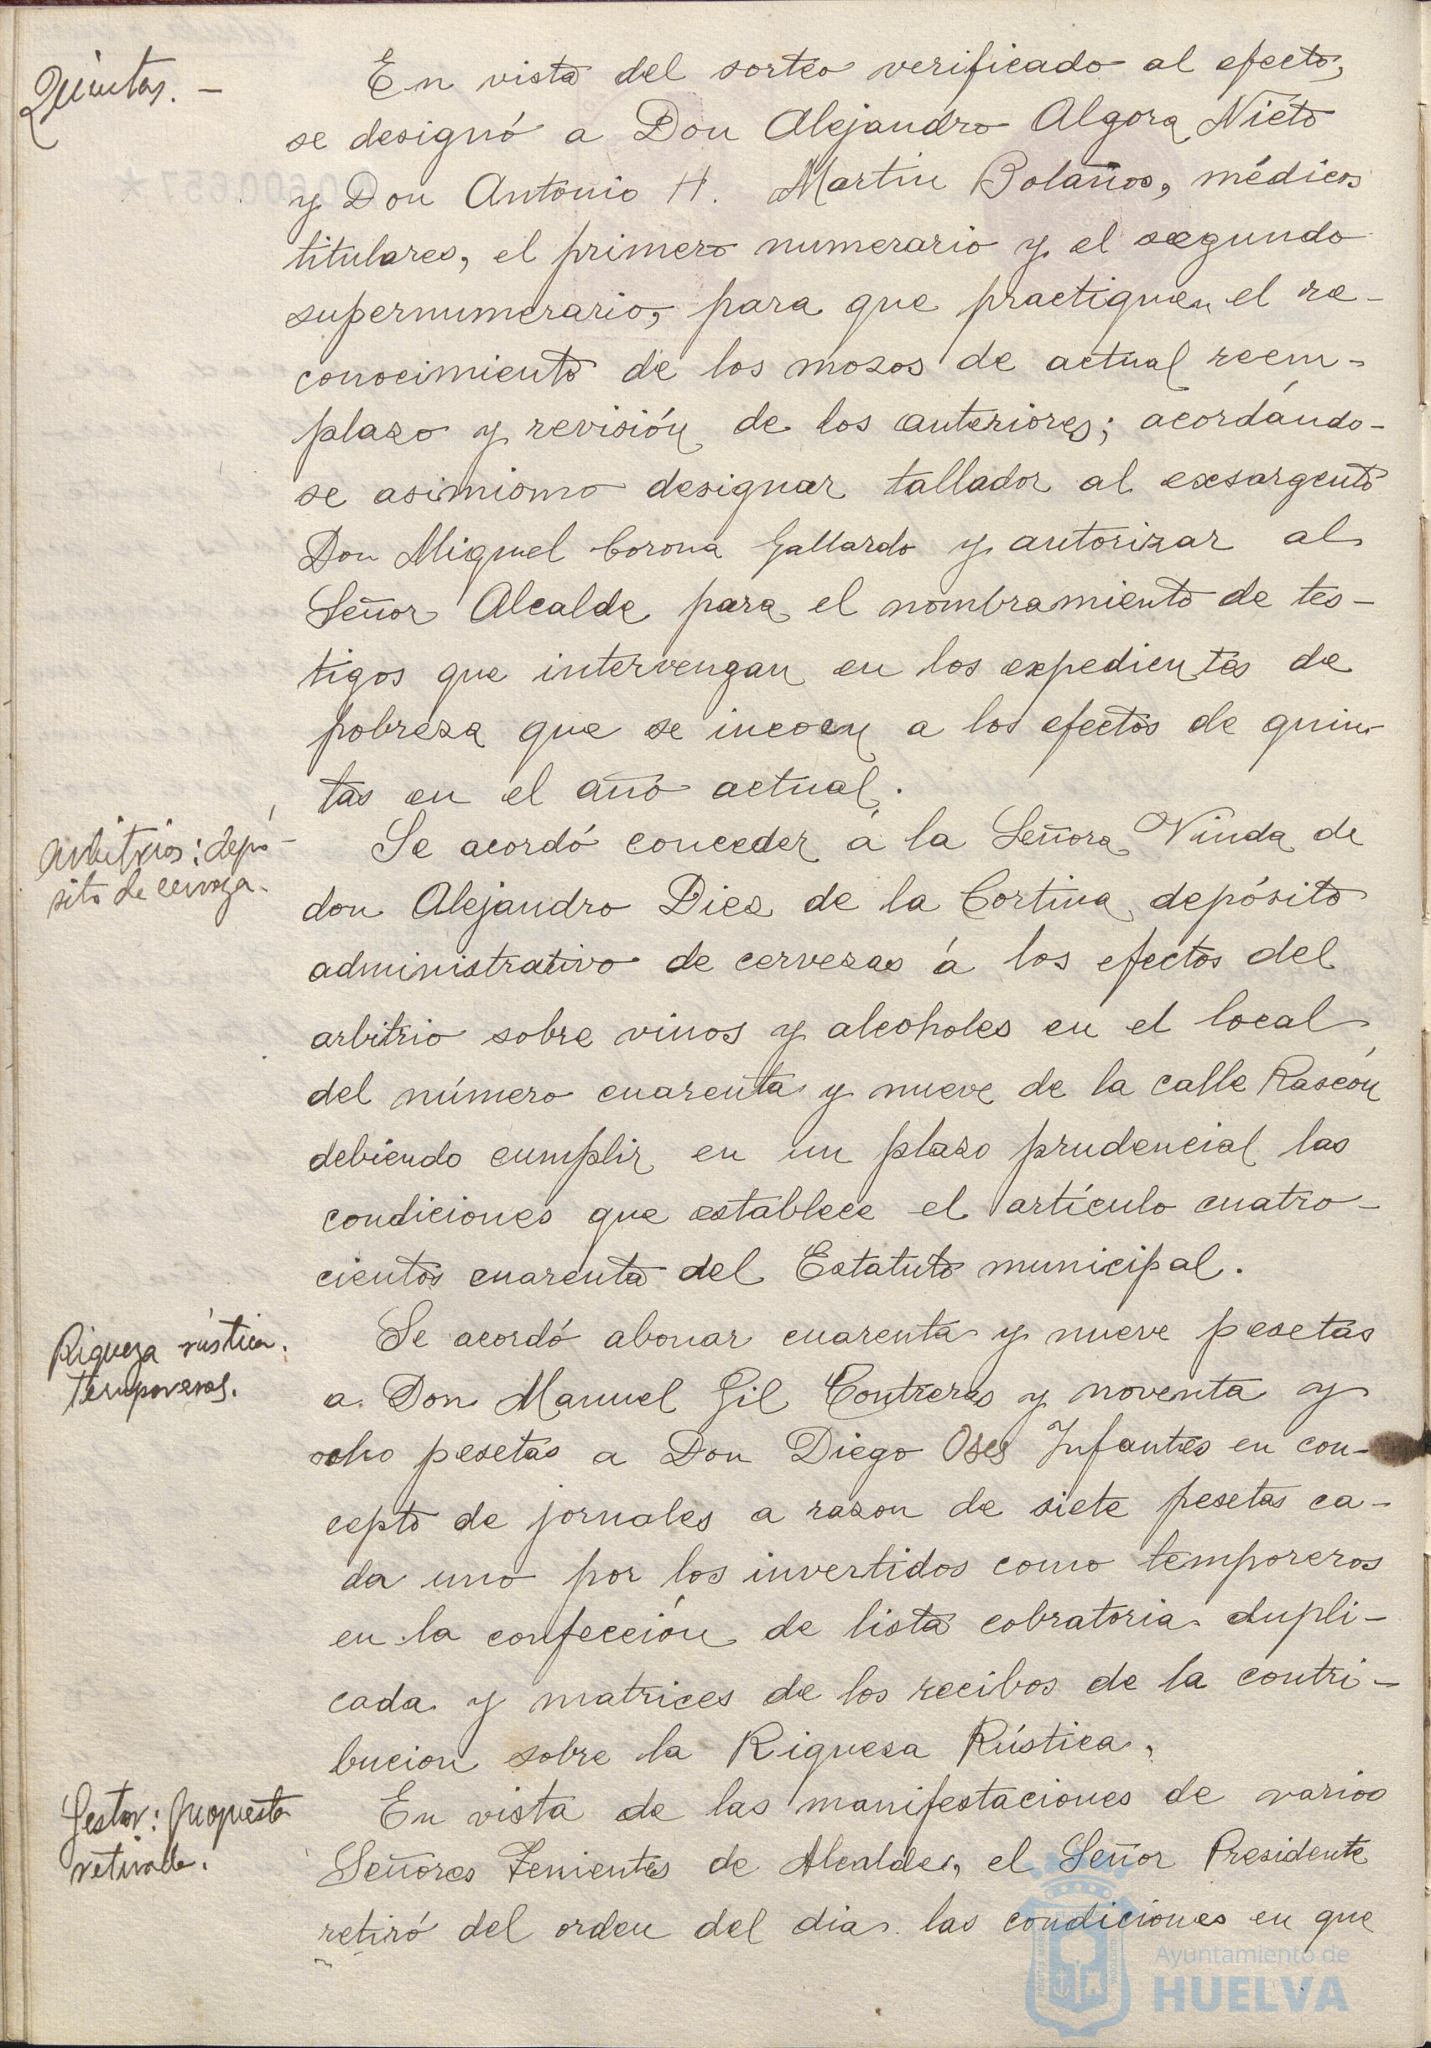 Quintas. —
En vista del sorteo verificado al efecto,
se designó a Don Alejandro Algora Nieto
y Don Antonio H. Martin Bolaños, médicos
titulares, el primero numerario y el segundo
supernumerario, para que practiquen el re-
conocimiento de los mozos de actual reem-
plazo y revisión de los anteriores; acordándo-
se asimismo designar tallador al exsargento
Don Miguel Corona Gallardo y autorizar al
Señor Alcalde para el nombramiento de tes-
tigos que intervengan en los expedientes de
pobreza que se incoen a los efectos de quin-
tas en el año actual.
Arbitrios: depó-
sito de cerveza.
Se acordó conceder á la Señora Viuda de
don Alejandro Diez de la Cortina depósito
administrativo de cervezas á los efectos del
arbitrio sobre vinos y alcoholes en el local
del número cuarenta y nueve de la calle Rascón
debiendo cumplir en un plazo prudencial las
condiciones que establece el artículo cuatro-
cientos cuarenta del Estatuto municipal.
Riqueza rústica.
temporeros.
Se acordó abonar cuarenta y nueve pesetas
a Don Manuel Gil Contreras y noventa y
ocho pesetas a Don Diego Oses Infantes en con-
cepto de jornales a razon de siete pesetas ca-
da uno por los invertidos como temporeros
en la confección de lista cobratoria dupli-
cada y matrices de los recibos de la contri-
bucion sobre la Riqueza Rústica.
Gestor: propuesta
retirada.
En vista de las manifestaciones de varios
Señores Tenientes de Alcalde, el Señor Presidente
retiró del orden del dia las condiciones en que
Ayuntamiento de
HUELVA